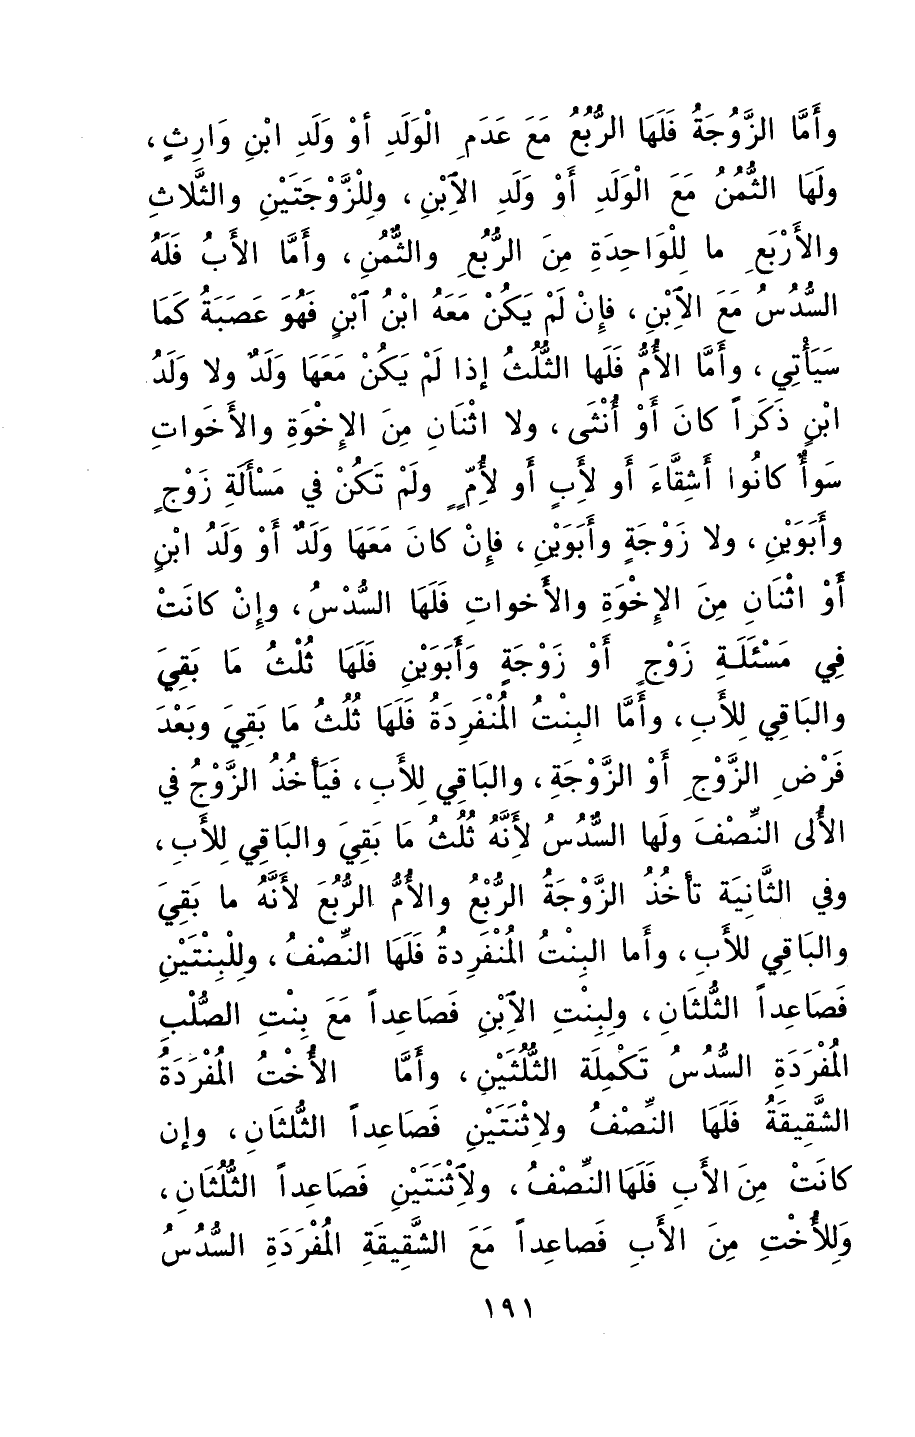 وأَمَّا الزَّوْجَةُ فَلَهَا الرُّبُعُ مَعَ عَدَمِ الْوَلَدِ أوْ وَلَدِ ابْنِ وَارِثٍ،
ولَهَا الثُّمُنُ مَعَ الْوَلَدِ أَوْ وَلَدِ الٱِبْنِ، وللْزَّوْجَتَيْنِ والثَّلاثِ
والأَرْبَعِ ما لِلْوَاحِدَةِ مِنَ الرُّبُعِ والثُّمُنِ، وأَمَّا الأَبُ فَلَهُ
السُّدُسُ مَعَ الٱِبْنِ، فإِنْ لَمْ يَكُنْ مَعَهُ ابْنُ ٱبْنٍ فَهُوَ عَصَبَةُ كَمَا
سَيَأْتِي، وأَمَّا الأُمُّ فَلَها الثُّلُثُ إذا لَمْ يَكُنْ مَعَهَا وَلَدٌ ولا وَلَدُ
ابْنٍ ذَكَراً كانَ أَوْ أُنْثَى، ولا اثْنَانِ مِنَ الإِخْوَةِ والأَخَواتِ
سَوأٌ كانُوا أَشِقَّاءَ أَو لأَبٍ أَو لأُمّ ٍ ولَمْ تَكُنْ في مَسْأَلَةِ زَوْجٍ
وأَبَوَيْنِ، ولا زَوْجَةٍ وأَبَوَيْنِ، فإِنْ كانَ مَعَهَا وَلَدٌ أَوْ وَلَدُ ابْنٍ
أَوْ اثْنَانِ مِنَ الإِخْوَةِ والأَخواتِ فَلَهَا السُّدْسُ، وإِنْ كانَتْ
فِي مَسْئَلَةِ زَوْجٍ أَوْ زَوْجَةٍ وَأَبَوَيْنِ فَلَهَا ثُلْثُ مَا بَقِيَ
والبَاقِي لِلأَبِ، وأَمَّا البِنْتُ المُنْفَرِدَةُ فَلَهَا ثُلُثُ مَا بَقِيَ وبَعْدَ
فَرْضِ الزَّوْجِ أَوْ الزَّوْجَةِ، والبَاقِي لِلأَبِ، فَيَأْخُذُ الزَّوْجُ في
الأُلى النِّصْفَ ولَها السُّدُسُ لأَنَّهُ ثُلُثُ مَا بَقِيَ والبَاقِي لِلأَبِ،
وفي الثَّانِيَة تأخُذُ الزَّوْجَةُ الرُّبْعُ والأُمُّ الرُّبُعَ لأَنَّهُ ما بَقِيَ
والبَاقِي للأَبِ، وأَما البِنْتُ المُنْفَرِدةُ فَلَهَا النِّصْفُ، وللْبِنْتَيْنِ
فَصَاعِداً الثُّلثَانِ، ولِبِنْتِ الٱِبْنِ فَصَاعِداً مَعَ بِنْتِ الصُّلْبِ
المُفْرَدَةِ السُّدُسُ تَكْمِلَة الثُّلُثَيْنِ، وأَمَّا الأُخْتُ المُفْرَدَةُ
الشَّقِيقَةُ فَلَهَا النِّصْفُ ولاِثْنَتَيْنِ فَصَاعِداً الثُّلثَانِ، وإن
كانَتْ مِنَ الأَبِ فَلَهَا النِّصْفُ، ولاَثْنَتَيْنِ فَصَاعِداً الثُّلُثَانِ،
وَلِلأُخْتِ مِنَ الأَبِ فَصاعِداً مَعَ الشَّقِيقَةِ المُفْرَدَةِ السُّدُسُ
١٩١